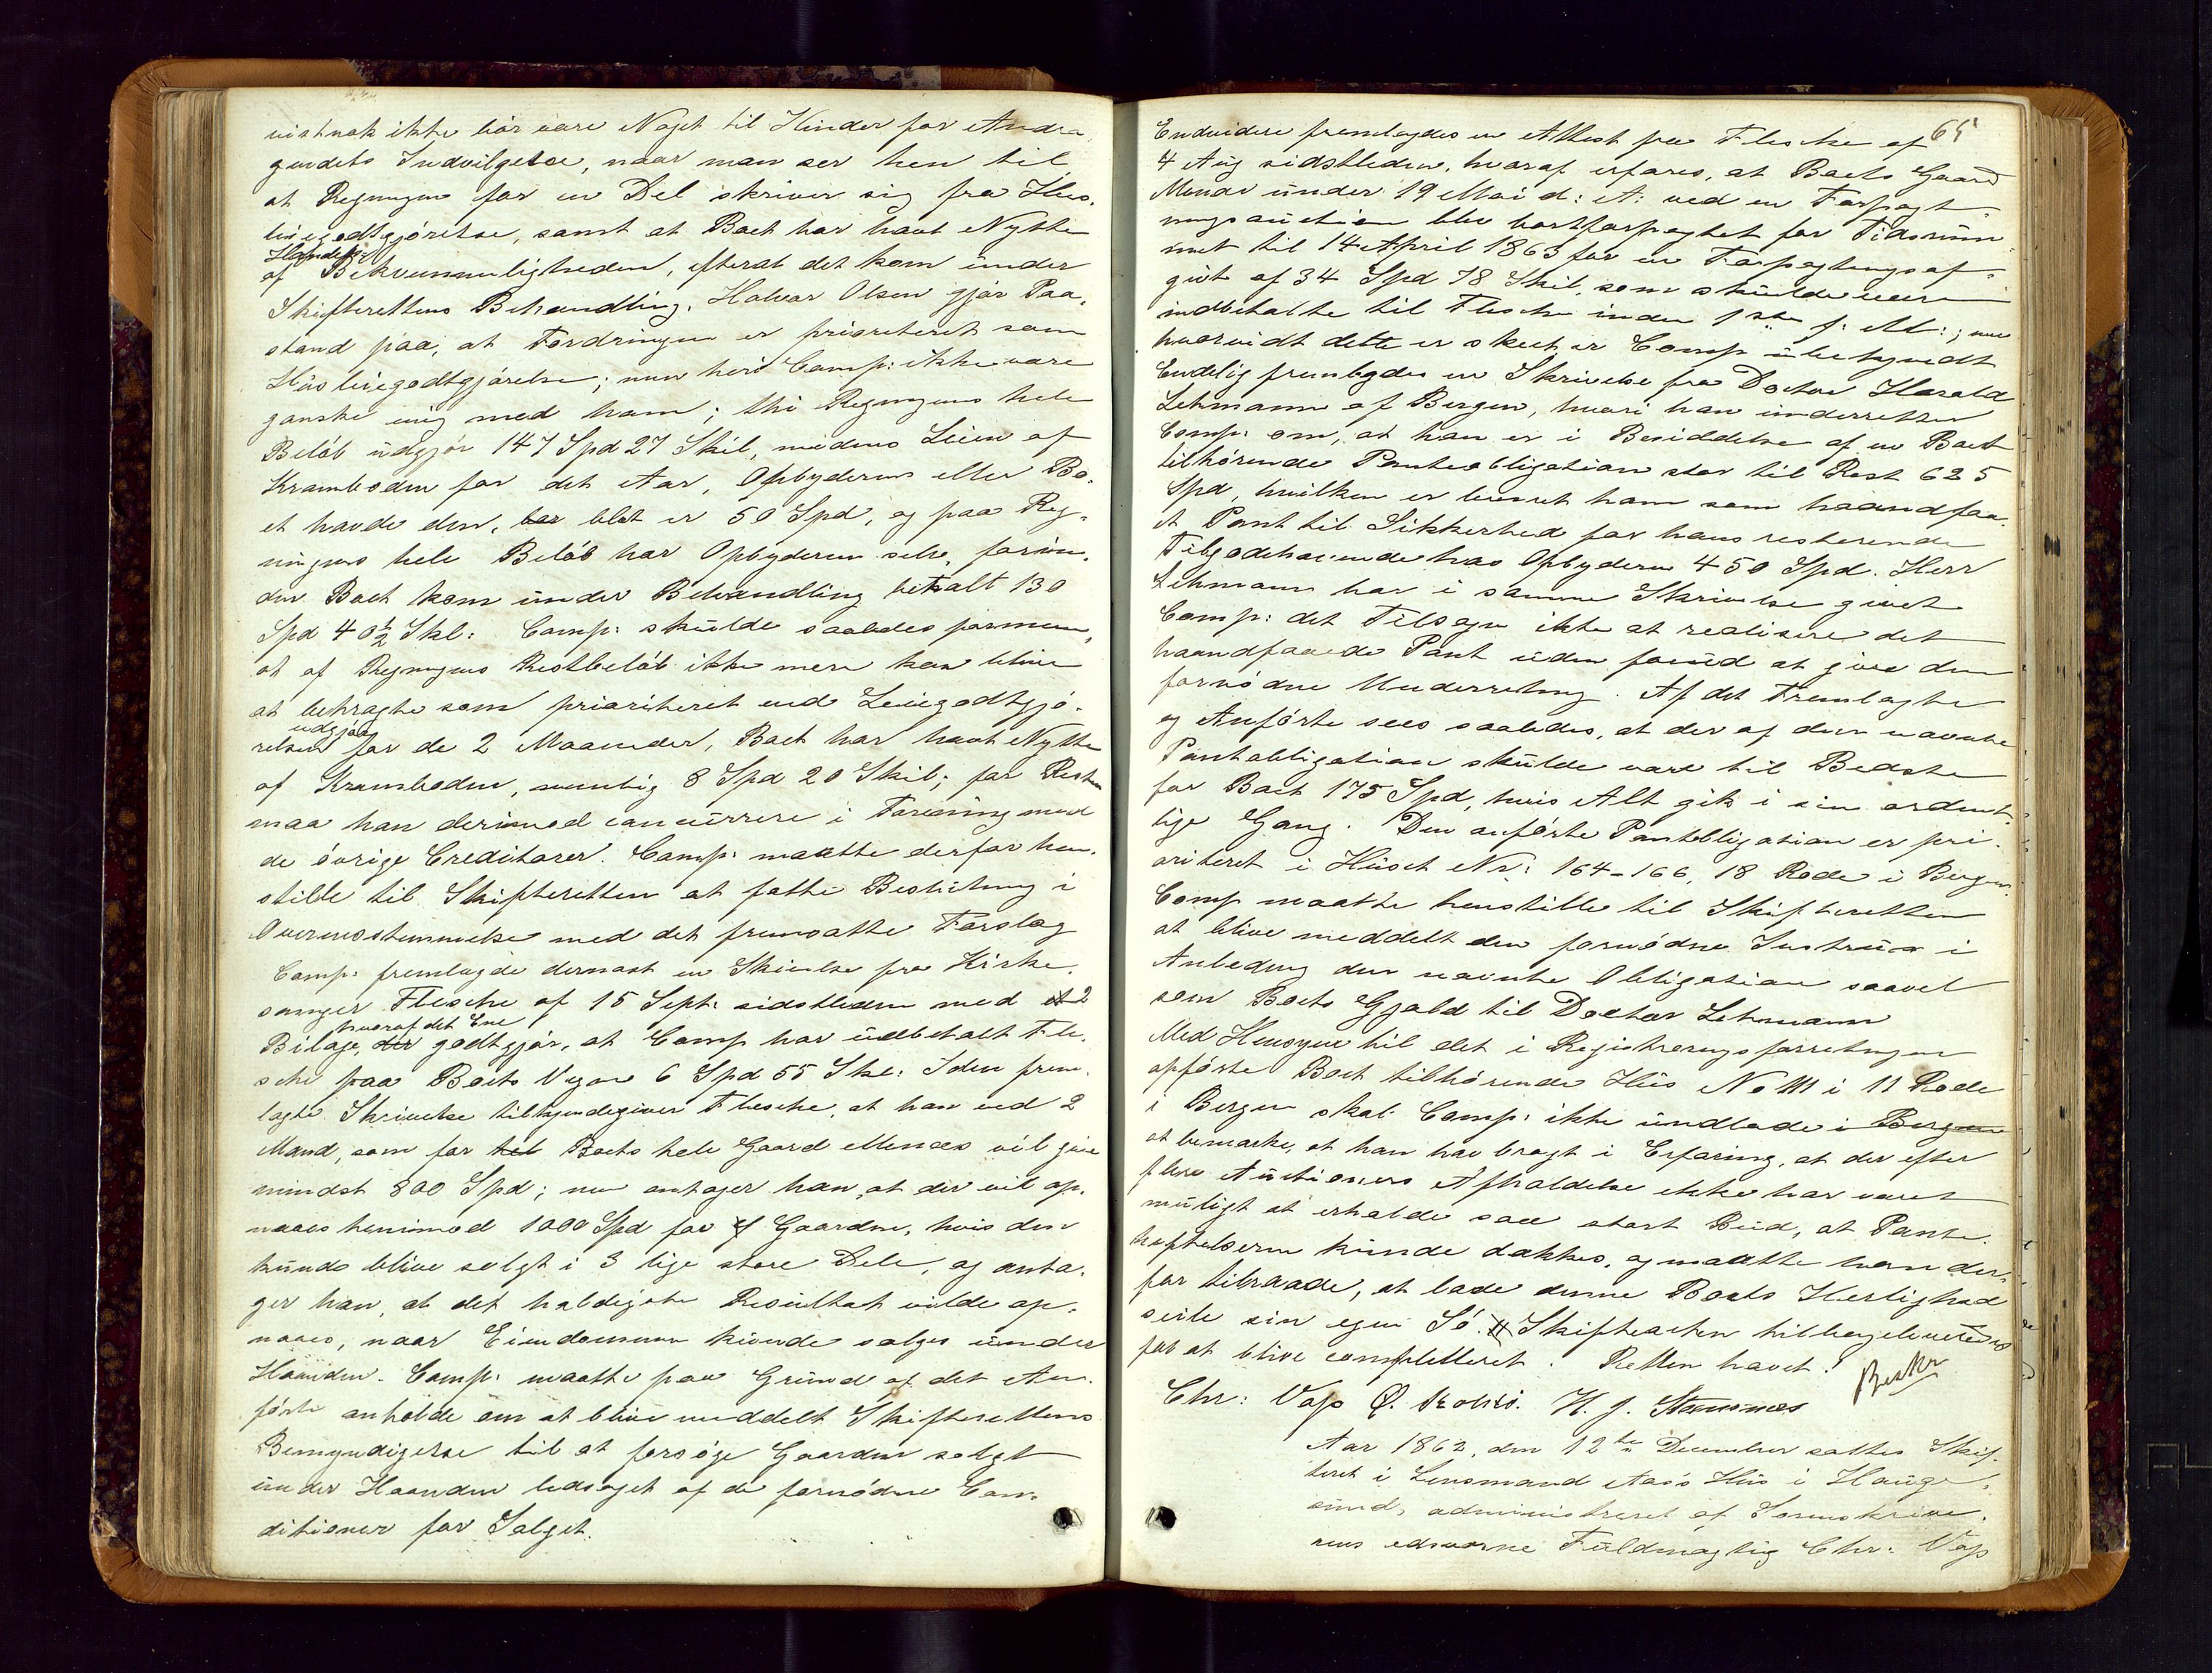 vistnok ikke bör være Noget til Hinder for Andra
gendets Indvilgelse, naar man ser hen til
at Regningen for en Del skriver sig fra Huus,
leiegodtgjörelse, samt at Boet har havt Nytte
Handels
af Bekvemmeligheden, efterat det kom under
Skifterettens Behandling. Halvor Olsen gjör Paa,
stand paa, at Fordringen er prioriteret som
Huusleiegodtgjörelse; men heri Comp: ikke være
ganske enig med ham; thi Regningens hele
Belöb udgjör 147 Spd 27 Skil, medens Leien af
Kramboden for det Aar, Opbyderens eller Bo,
et havde den, har blot er 50 Spd, og paa Reg,
ningens hele Belöb har Opbyderen selv, forin,
den Boet kom under Behandling betalt 130
Spd 40½ Skl: Comp: skulde saaledes formene,
at af Regningens Restbelöb ikke mere kan blive
at betragte som prioriteret end Leiegodtgjö,
udgjör
relsen for de 2 Maaneder, Boet har havt Nytte
af Kramboden, nemlig 8 Spd 20 Skil; for Resten
maa han derimod concurrere i Forening med
de övrige Creditorer. Comp: maatte derfor hen,
stille til Skifteretten at fatte Beslutning i
Overensstemmelse med det fremsatte Forslag
Comp: fremlagde dernæst en Skrivelse fra Kirke,
sanger Flesche af 15 Sept: sidstleden med et 2
hvoraf det Ene
Bilage, der godtgjör, at Comp har udbetalt Fle,
sche paa Boets Vegne 6 Spd 55 Skl: I den frem,
lagte Skrivelse tilkjendegiver Flesche, at han ved 2
Mand, som for hel Boets hele Gaard Alenæs vil give
mindst 800 Spd; men antager han, at der vil op,
naaes henimod 1000 Spd for af Gaarden, hvis den
kunde blive solgt i 3 lige store Dele, og anta,
ger han, at det heldigste Resultat vilde op,
naaes, naar Eiendommen kunde sælges under
Haanden. Comp: maatte paa Grund af det An,
förte anholde om at blive meddelt Skifterettens
Bemyndigelse til at forsöge Gaarden solgt
under Haanden ledsaget af de fornödne Con,
ditioner for Salget.
65
Endvidere fremlagdes en Attest fra Flesche af
4 Aug sidstleden, hvoraf erfares, at Boets Gaard
under 19 Mai d: A: ved en Forpagt
ningsauction blev bortforpagtet for Tidsrum
met til 14 April 1863 for en Forpagtningsaf,
gift af 34 Spd 78 Skil, som skulde være
indbetalte til Flesche inden 1ste f: M:; men
hvorvidt dette er skeet er Comp ubekjendt
Endelig fremlagdes en Skrivelse fra Doctor Harald
Lehmann af Bergen, hvori han underretter
Comp: om, at han er i Besiddelse af en Boet
tilhörende Panteobligation stor til Rest 625
Spd, hvilken er leveret ham som haandfaa,
et Pant til Sikkerhed for hans resterende
Tilgodehavende hos Opbyderen 450 Spd. Herr
Lehmann har i samme Skrivelse givet
Comp: det Tilsagn ikke at realisere det
haandfaaede Pant uden forud at give den
fornödne Underretning. Af det Fremlagte
og Anförte sees saaledes, at der af den nævnte
Pantobligation skulde være til Bedste
for Boet 175 Spd, hvis Alt gik i sin ordent,
lige Gang. Den anförte Pantobligation er pri,
oriteret i Huset No: 164-166, 18 Rode i Bergen.
Comp maatte henstille til Skifteretten
at blive meddelt den fornödne Instrux i
Anledning den nævnte Obligation saavel
som Boets Gjæld til Doctor Lehmann
Med Hensyn til det i Registreringsforretningen
opförte Boet tilhörende Huus No 111 i 11 Rode
i Bergen skal Comp: ikke undlade i Bergen
at bemærke, at han har bragt i Erfaring, at der efter
flere Auctioners Afholdelse ikke har været
muligt at erholde saa stort Bud, at Pante,
heftelserne kunde dækkes, og maatte han der,
for tilraade, at lade denne Boets Herlighed
seile sin egen Sö. Skifteacten tilbageleveredes
for at blive completteret. Retten hævet.
Chr: Vogs H. J.
Aar 1862, den 12te December sattes Skif,
teret i Lensmand Aas's Huus i Hauge,
sund, administreret af Sorenskrive,
rens edsvorne Fuldmægtig Chr: Vogs